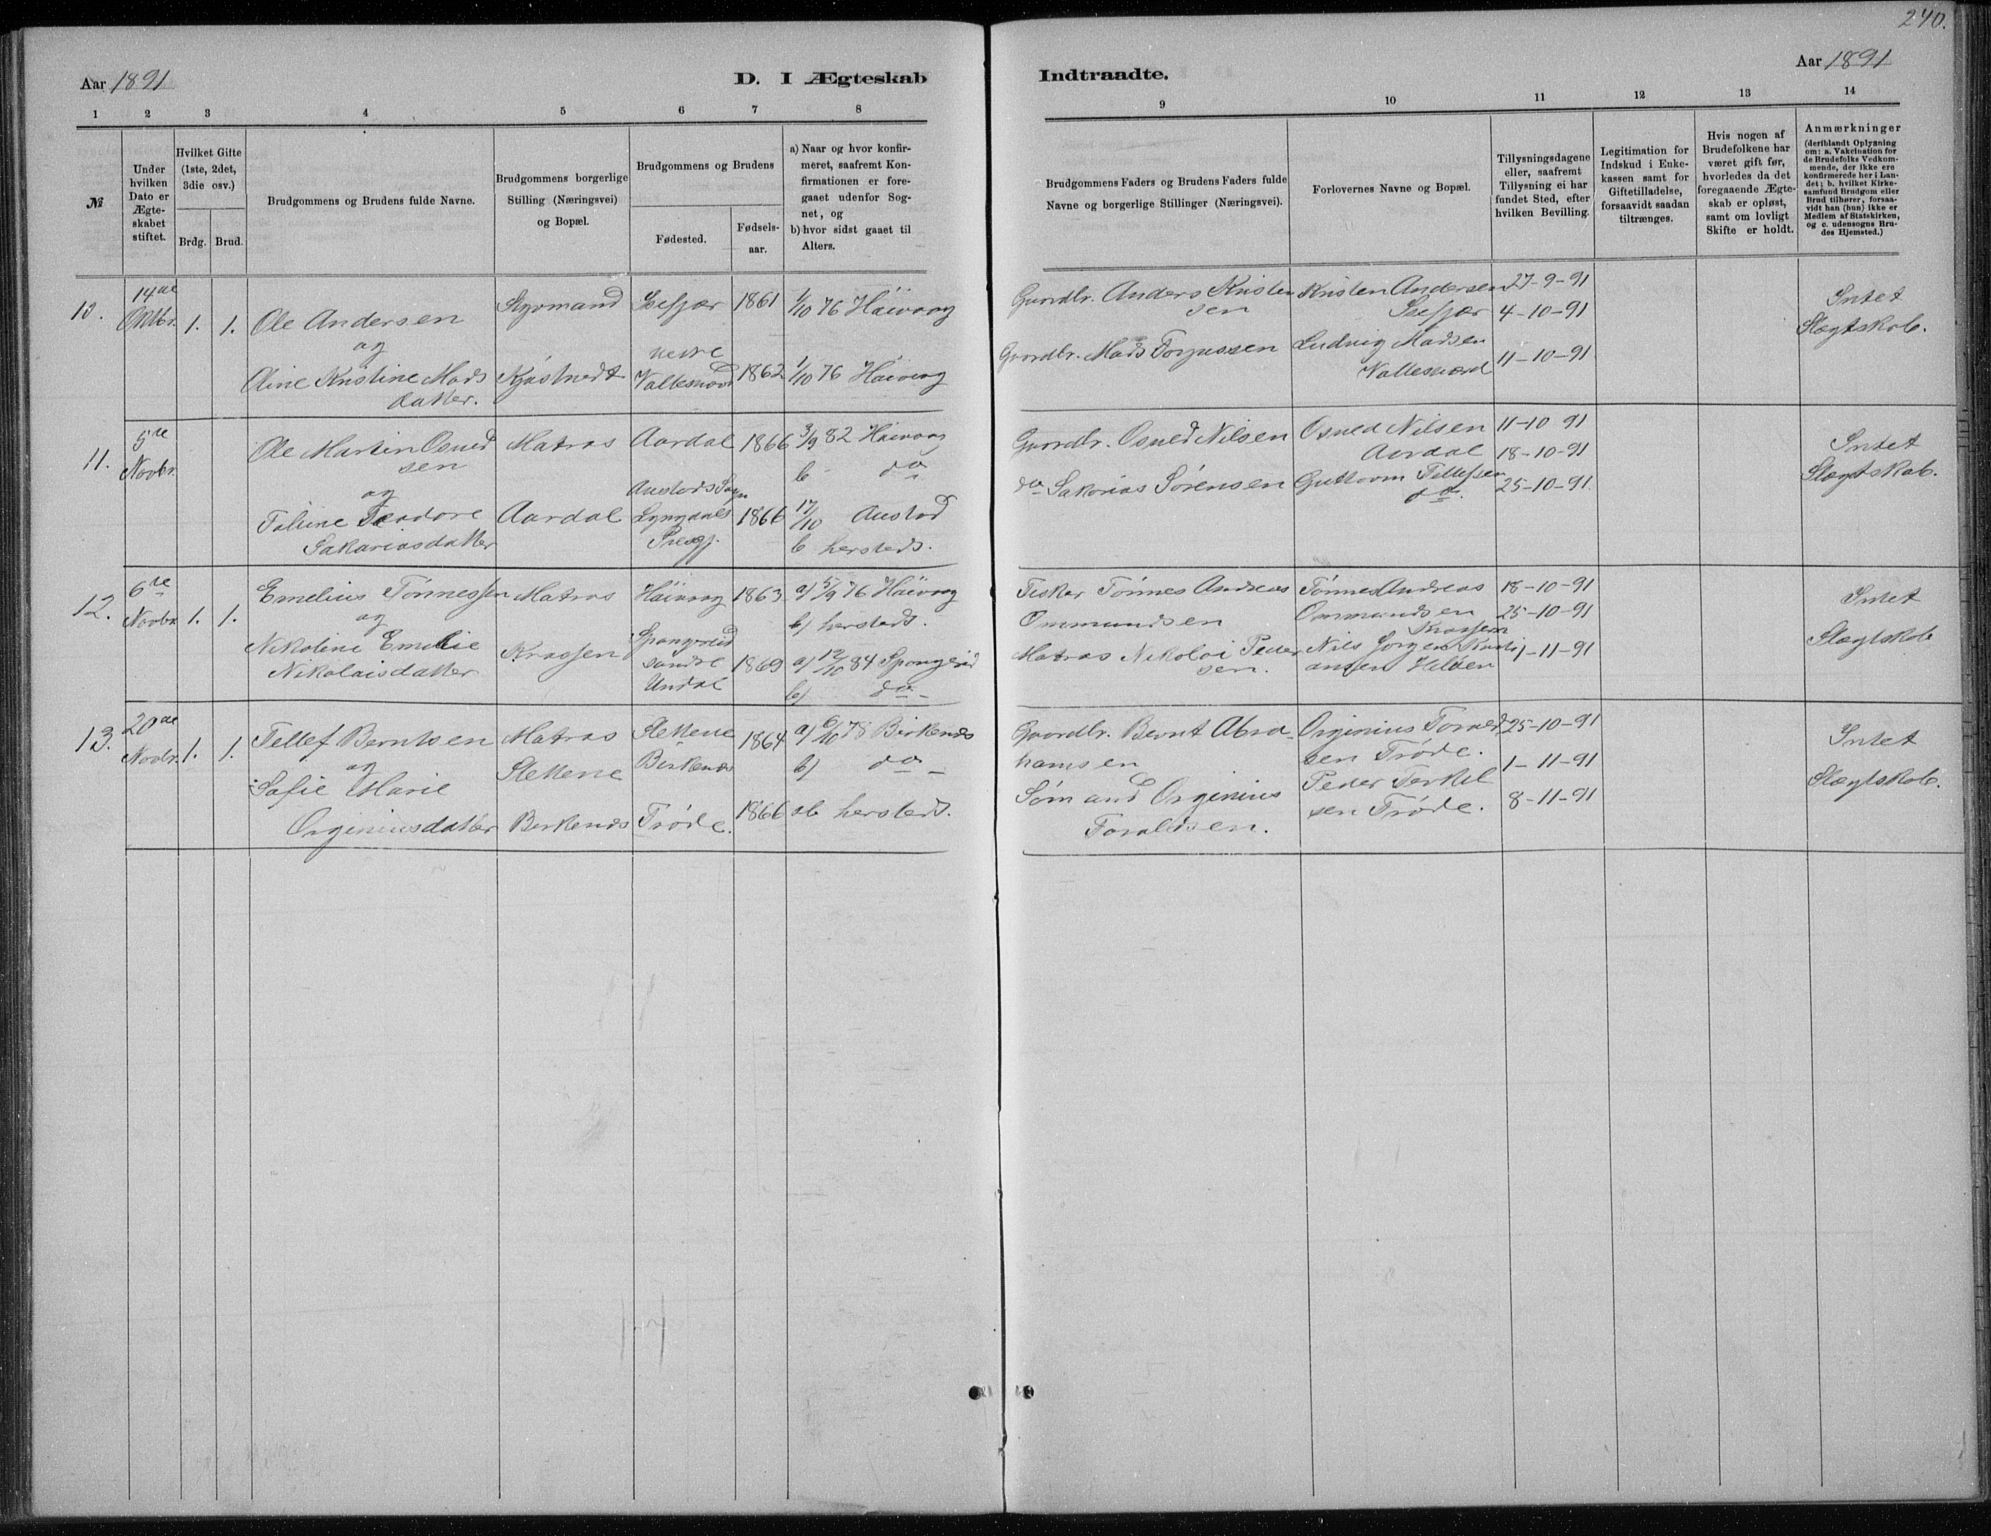 240.
Aar 1891
D. I Ægteskab
Indtraadte.
Aar 1891
1 2 3 4 5 6 7 8
9 10 11 12 13 14
№
Under hvilken Dato er Ægte-skabet stiftet.
Hvilket Gifte (1ste, 2det, 3die osv.)
Brdg. Brud.
Brudgommens og Brudens fulde Navne.
Brudgommens borgerlige Stilling (Næringsvei) og Bopæl.
Brudgommens og Brudens
Fødested.
Fødsels-aar.
a) Naar og hvor konfir-
meret, saafremt Kon-
firmationen er fore-
gaaet udenfor Sog-
net, og
b) hvor sidst gaaet til
Alters.
Brudgommens Faders og Brudens Faders fulde
Navne og borgerlige Stillinger (Næringsvei).
Forlovernes Navne og Bopæl.
Tillysningsdagene
eller, saafremt
Tillysning ei har
fundet Sted, efter
hvilken Bevilling.
Legitimation for
Indskud i Enke-
kassen samt for
Giftetilladelse,
forsaavidt saadan
tiltrænges.
Hvis nogen af
Brudefolkene har
været gift før,
hvorledes da det
foregaaende Ægte-
skab er opløst,
samt om lovligt
Skifte er holdt.
Anmærkninger
(deriblandt Oplysning
om: a. Vakcination for
de Brudefolks Vedkom-
mende, der ikke ere
konfirmerede her i Lan-
det; b. hvilket Kirke-
samfund Brudgom eller
Brud tilhører, forsaa-
vidt han (hun) ikke er
Medlem af Statskirken,
og c. udensogns Bru-
des Hjemsted.)
10. 14de Oktbr. 1. 1.
Ole Andersen
og
Oline Kristine Mads
datter.
Styrmand
Kjøstvedt
1861
nedre
Vallesværd 1862
1/10 76 Häivaag
1/10 76 Häivaag
Gaardbr. Anders Kristen
sen
Gaardbr. Mads Torjussen
Kristen Andersen
Ludvig Madsen
Vallesværd
27-9-91
4-10-91
11-10-91
Intet
Slægtskab.
11. 5te Novbr.
Ole Martin Osmed
sen
og
Teodore
Sakariasdatter
Matros
Aardal
Aardal 1866
Austads Sogn
Lyngdals
Præstgj. 1866
3/9 82 Häivaag
b do
17/10 Austad
b hersteds.
Gaardbr. Osmed Nilsen
do Sakarias Sørensen
Osmed Nilsen
Aardal
Guttorm Tellefsen
do.
11-10 91
18-10-91
25-10-91.
Intet
Slægtskab.
12. 6te Novbr. 1. 1.
Emelius Tønnessen
og
Nikoline Emelie
Nikolaisdatter
Matros
Kragsen
Häivaag 1863
Spangereid
søndre
Undal 1869
a) 5/9 76 Häivaag
b) hersteds.
a) 12/10 84 Spangereid
b) do
Fisker Tønnes Andreas
Ommundsen
Matros Nikolai Peder
sen.
Tønnes Andreas
Ommundsen
Nils Jørgen Kristi
ansen
18-10-91
25-10-91
1-11-91
Intet
Slægtskab
13. 20de Novbr. 1. 1.
Tellef Berntsen
og
Sofie Marie
Orginiusdatter
Matros
Slettene
Birkenæs
Slettene
Birkenæs 1864
Trøde. 1866
a) 6/10 78 Birkenæs
b) do
ab hersteds.
Gaardbr. Bernt Abra-
hamsen
Sømand Orginius
Toraldsen.
Orginius Torald
sen Trøde.
Peder Terkel
sen Trøde.
25-10-91
1-11-91
8-11-91
Intet
Slægtskab.